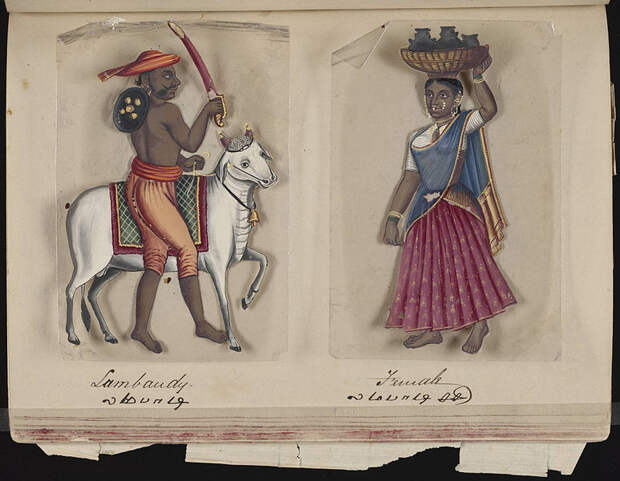 Lambaudy.
லமபாடி
Female
லமபாடி